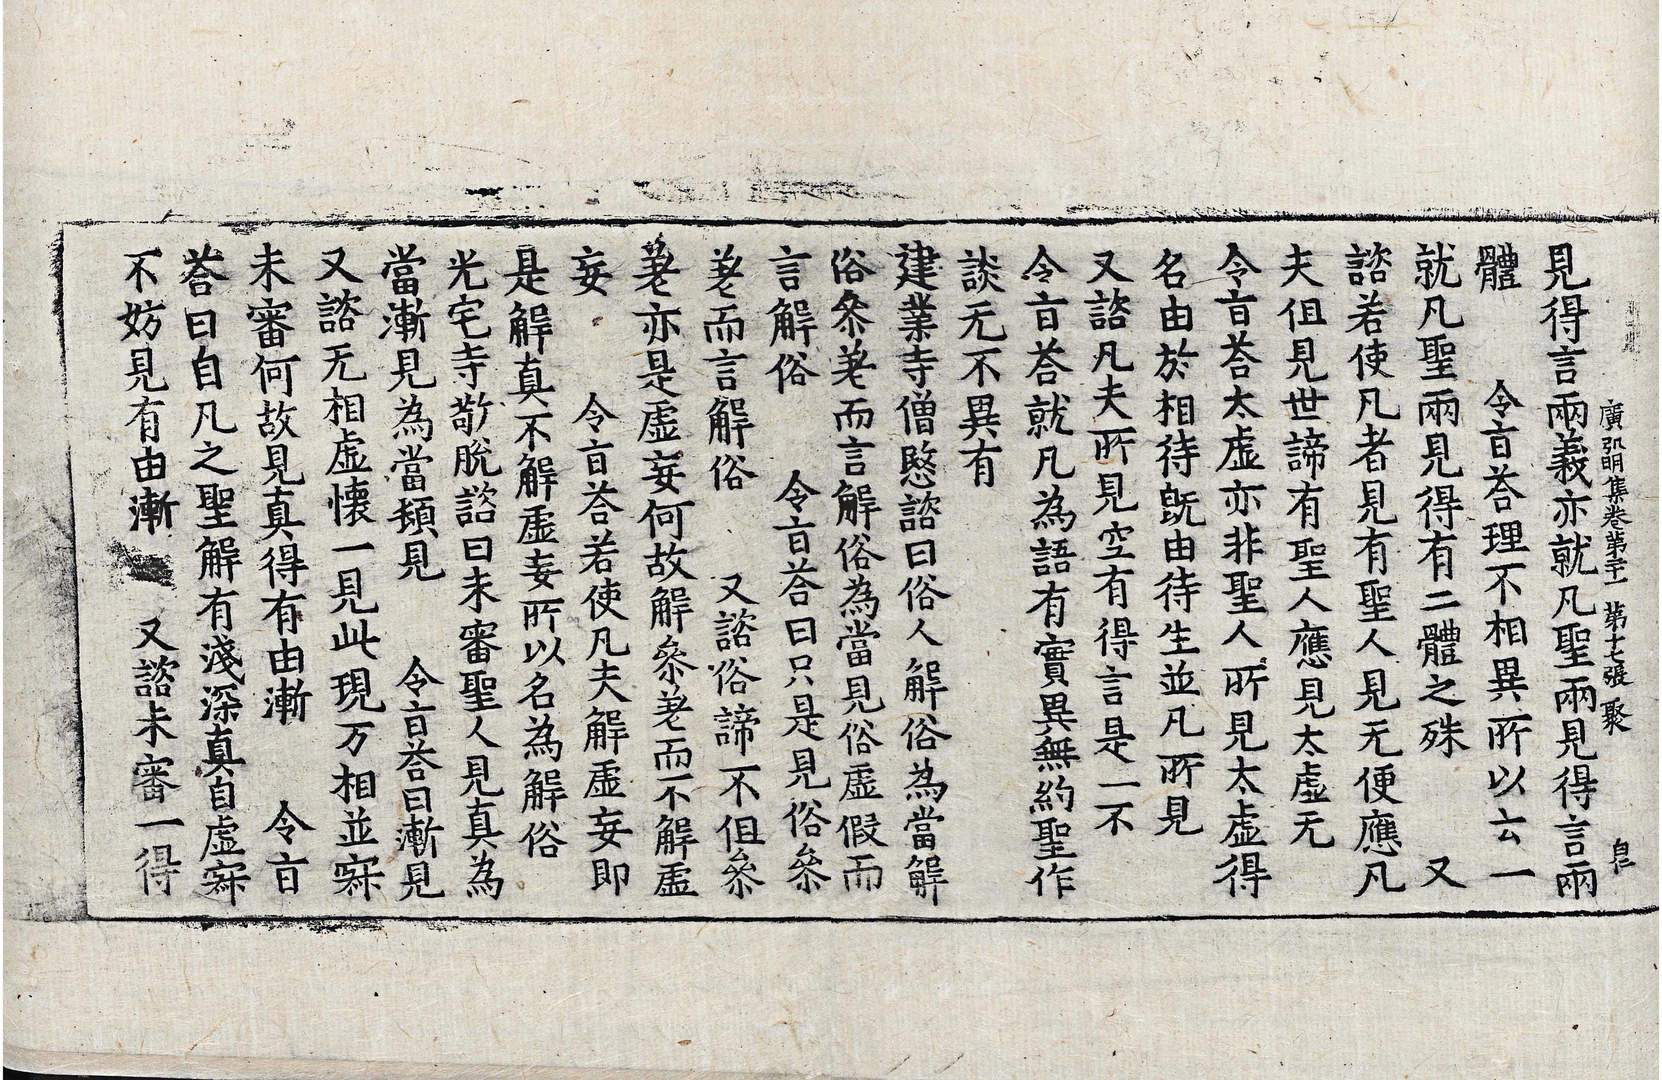 廣弘明集卷第二十一 第十七張 聚
見得言兩義亦就凡聖兩見得言兩
體 令旨荅理不相異所以云一
就凡聖兩見得有二體之殊 又
諮若使凡者見有聖人見无便應凡
夫但見世諦有聖人應見太虛无
令旨荅太虛亦非聖人所見太虛得
名由於相待既由待生並凡所見
又諮凡夫所見空有得言是一不
令旨荅就凡為語有實異無約聖作
談无不異有
建業寺僧愍諮曰俗人解俗為當解
俗叅差而言解俗為當見俗虛假而
言解俗 令旨荅曰只是見俗叅
差而言解俗 又諮俗諦不但叅
差亦是虛妄何故解叅差而不解虛
妄 令旨荅若使凡夫解虛妄即
是解真不解虛妄所以名為解俗
光宅寺敬脫諮曰未審聖人見真為
當漸見為當頓見 令旨荅曰漸見
又諮无相虛懷一見此現万相並寂
未審何故見真得有由漸 令旨
荅曰自凡之聖解有淺深真自虛寂
不妨見有由漸 又諮未審一得